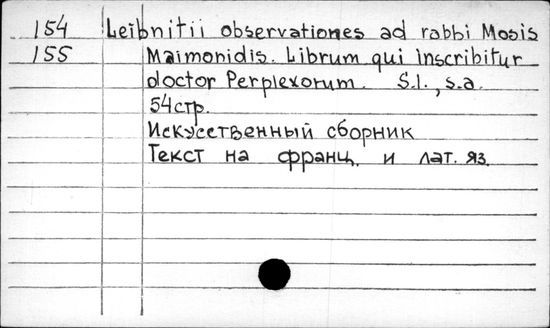 154 Leibnitii observationes ad rabbi Mosis
155 Maimonidis. Librum qui inscribitur
doctor Perplexorum. S.l., s.a.
54стр.
Искусственный сборник
Текст на франц. и лат. яз.